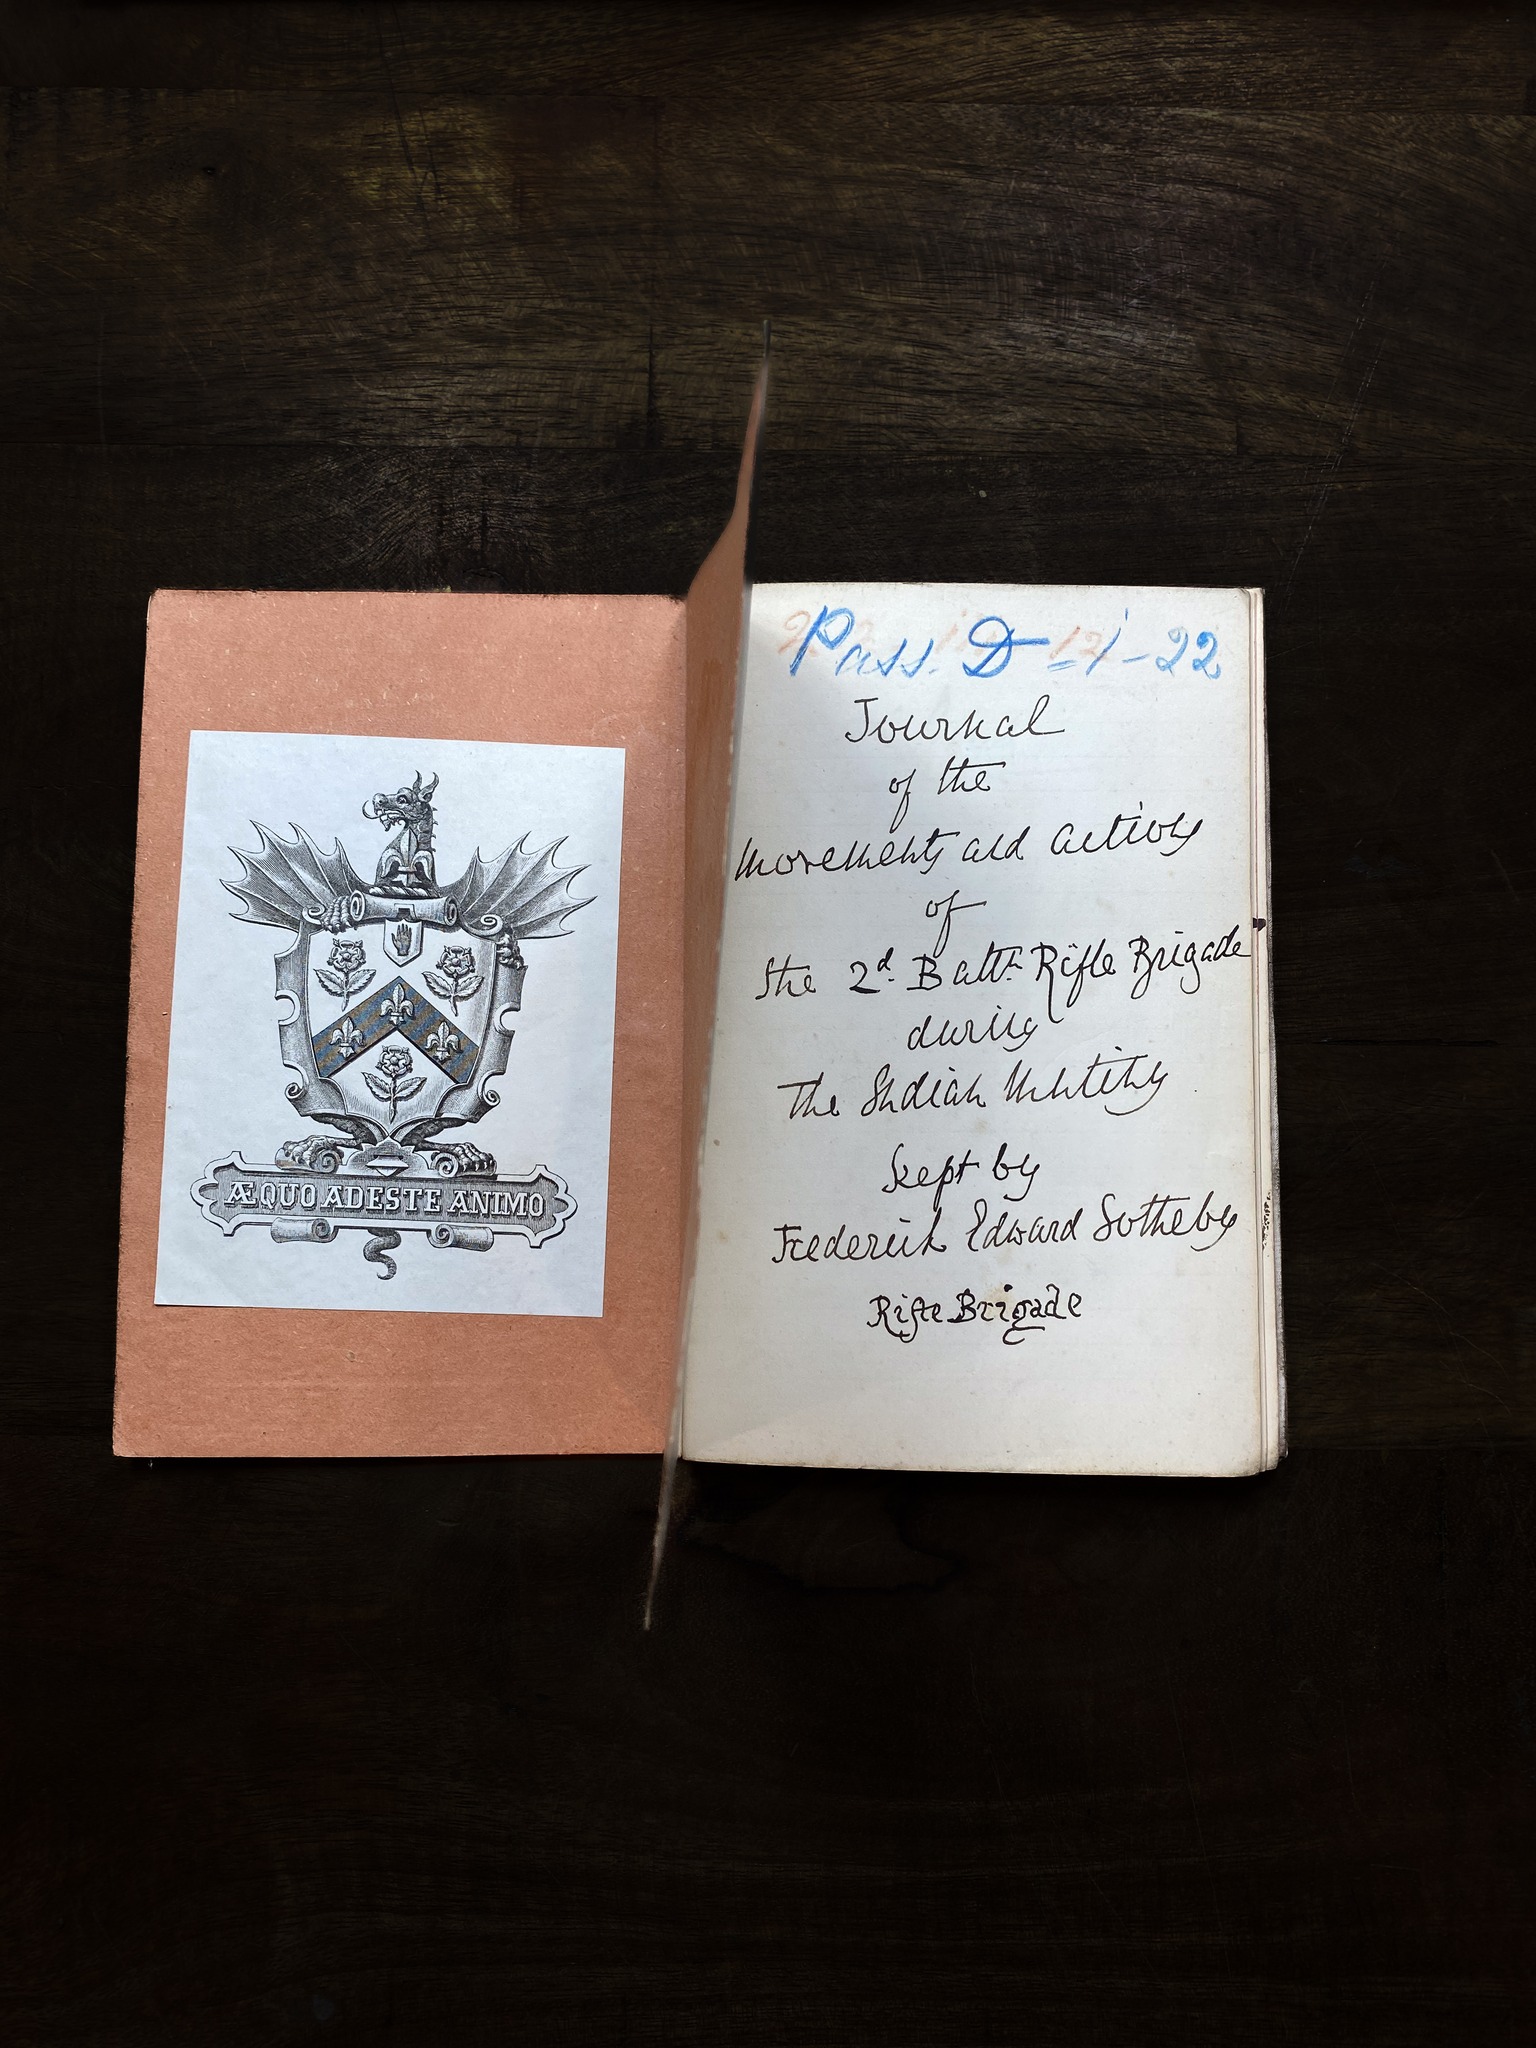 ÆQUO ADESTE ANIMO
Pass. D = 1 - 22
Journal
of the
Movements and Actions
of
The 2d. Battn. Rifle Brigade
during
The Indian Mutiny
kept by
Frederick Edward Sotheby
Rifle Brigade